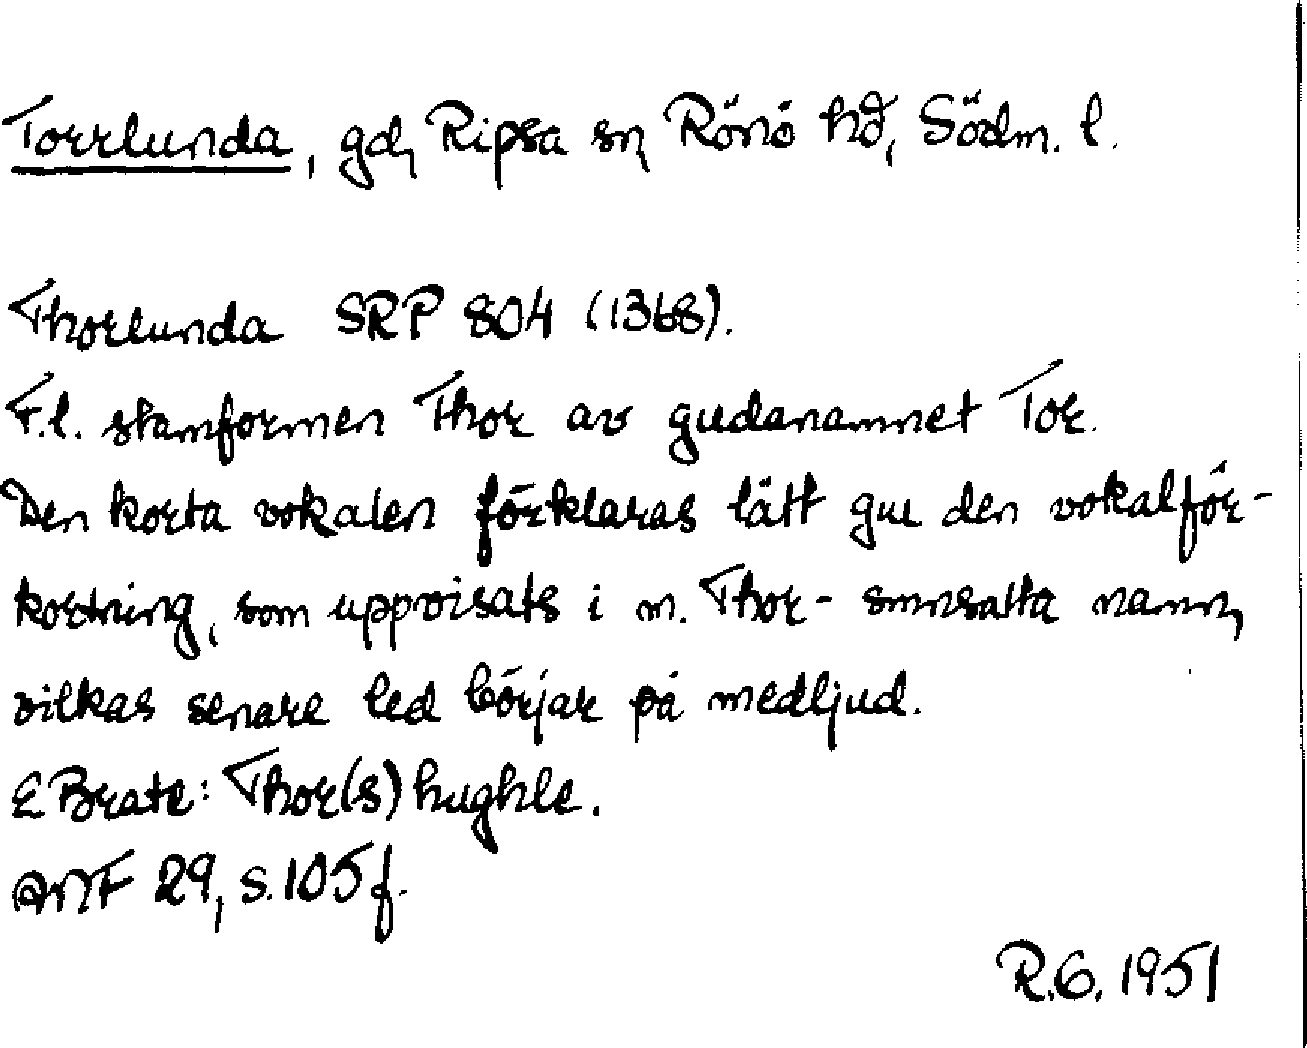 Torrlunda, gd, Ripsa sn, Rönö hd, Södm. l.
Thorlunda SRP 804 (1368).
F.l. stamformen Thor av gudanamnet Tor.
Den korta vokalen förklaras lätt gm den vokalför-
kortning, som uppvisats i m. Thor- smnsatta namn,
vilkas senare led börjar på medljud.
E Brate: Thor(s)hughle.
ANF 29, s. 105 f.
R.G. 1951